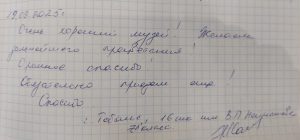 19.03.2025г
Очень хороший музей! Желаем
дальнейшего процветания!
Огромное спасибо!
Обязательно придем еще!
Спасибо
г. Тобольск, 16 шк им. В.П. Неймышева